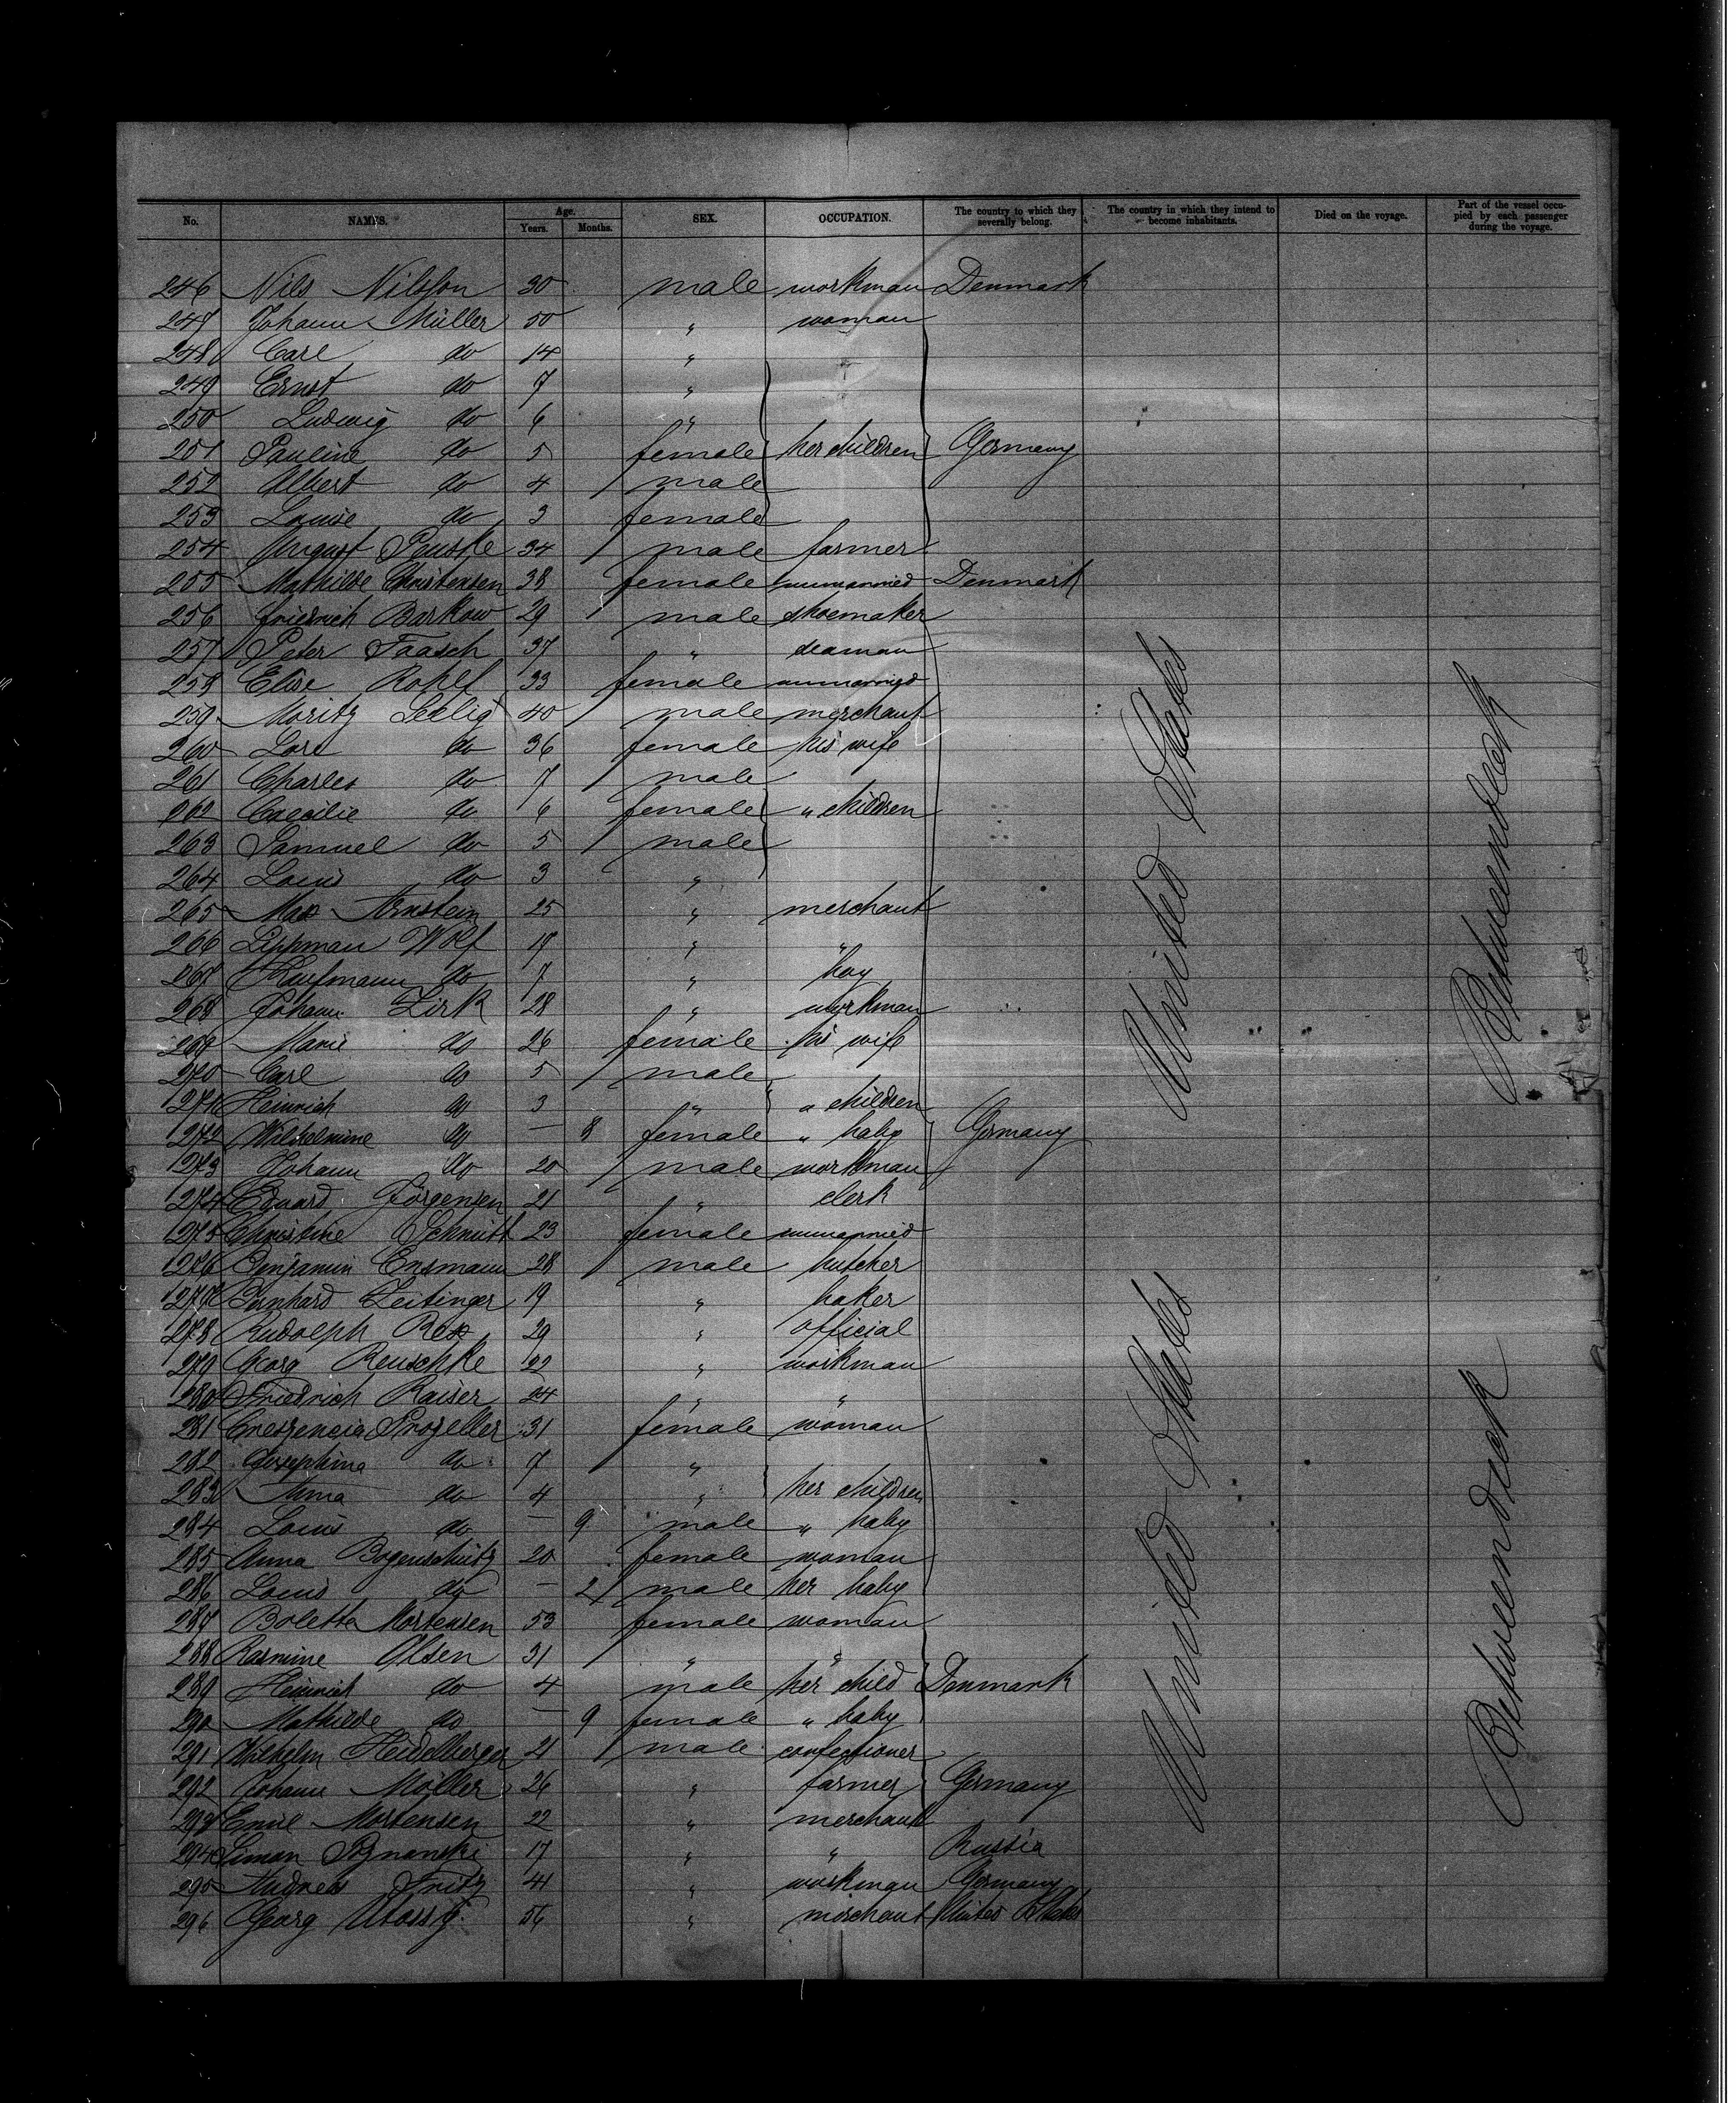 No. NAMES. Age. Years. Months. SEX. OCCUPATION. The country to which they severally belong. The country in which they intend to become inhabitants. Died on the voyage. Part of the vessel occupied by each passenger during the voyage.
246 Nils Nilsson 30 male workman Denmark
247 Johann Müller 50 " woman
248 Carl do 14 "
249 Ernst do 7 "
250 Ludwig do 6 "
251 Pauline do 5 female her children Germany
252 Albert do 4 male
253 Louise do 3 female
254 August 34 male farmer
255 Mathilde Christensen 38 female unmarried Denmark
256 Friedrich Barkow 29 male shoemaker
257 Peter Faasch 37 " seaman
258 Elise Rohlf 33 female unmarried
259 Moritz Seelig 40 male merchant
260 do 36 female his wife
261 Charles do 7 male
262 Caecilie do 6 female " children
263 Samuel do 5 male
264 Louis do 3 "
265 Max Arnstein 25 " merchant
266 Lipman Wolf 17 " "
267 Kaufmann do 7 " boy
268 Johann Zirk 28 " workman
269 Marie do 26 female his wife
270 Carl do 5 male
271 Heinrich do 3 " " children
272 Wilhelmine do — 8 female " baby Germany
273 Johann do 20 male workman
274 Eduard Jörgensen 21 " clerk
275 Christine Schmitt 23 female unmarried
276 Benjamin Ensmann 28 male butcher
277 Bernhard Zeitinger 19 " baker
278 Rudolph Rex 29 " official
279 Georg Reuschke 22 " workman
280 Friedrich Kaiser 24 " "
281 Crescencia Prozeller 31 female woman
282 Josephine do 7 "
283 Anna do 4 " her children
284 Louis do — 9 male " baby
285 Anna Bogenschütz 20 female woman
286 Louis do — 2 male her baby
287 Boletta Mortensen 53 female woman
288 Rasmine Olsen 31 " "
289 Heinrich do 4 male her child Denmark
290 Mathilde do — 9 female " baby
291 Wilhelm Heidelberger 21 male confectioner
292 Johann Möller 26 " farmer Germany
293 Emil Mortensen 22 " merchant
294 Simon 17 " " Russia
295 Andreas Fritz 41 " workman Germany
296 Georg 56 " merchant United States
United States
Betweendeck
United States
Betweendeck